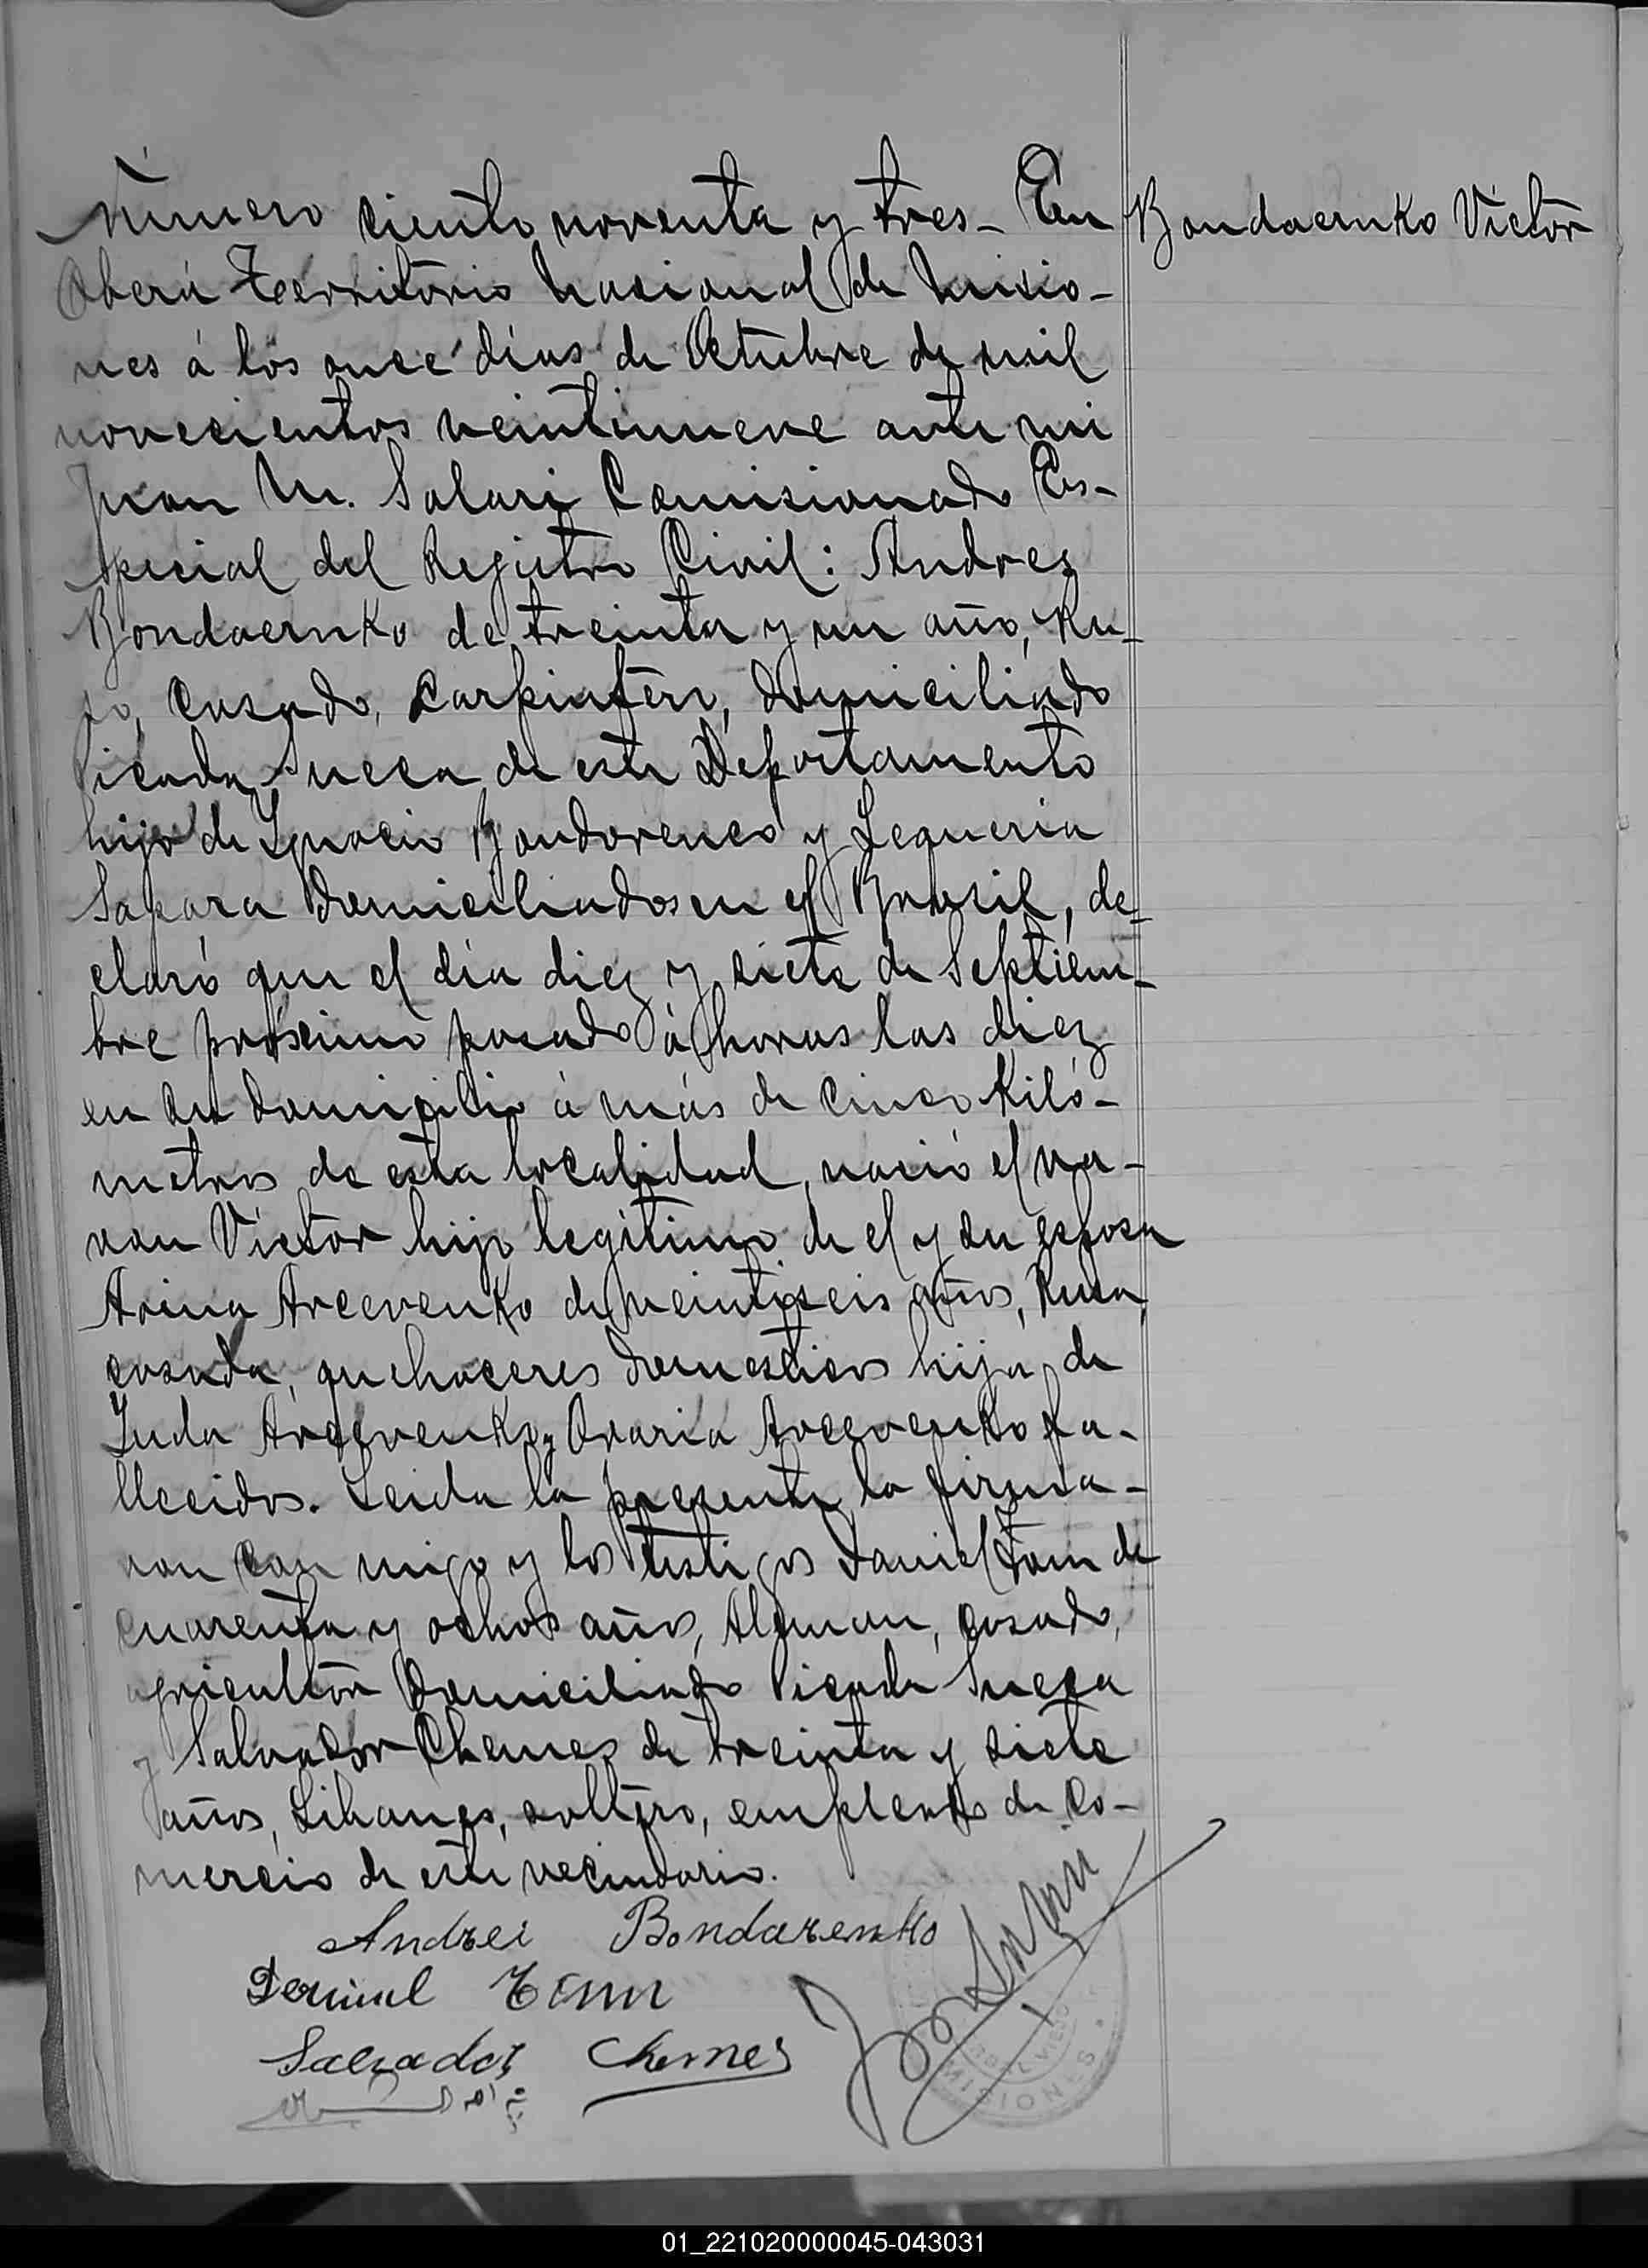 Número ciento noventa y tres_ En
Bondaernko Victor
Oberá Territorio Nacional de Misio-
nes á los once dias de Octubre de mil
novecientos veintinueve ante mi
Juan M. Solari Comisionado Es-
pecial del Registro Civil: Andres
Bondaernko de treinta y un año, Ru-
so, casado, carpintero, domiciliado
Picada Sueca de este Departamento
hijo de Ignacio Bondorenco y
Sapara domiciliados en el Brasil, de-
claró que el dia diez y siete de Septiem-
bre próximo pasado á horas las diez
en su domicilio á más de cinco Kiló-
metros de esta localidad, nació el va-
ron Victor hijo legitimo de el y su esposa
Arina Arcevenko de veintiseis años, Rusa,
casada, quehaceres domesticos hija de
Iuda Arcevenko y Ovaria Arcevenko fa-
llecidos. Leida la presente la firma-
ron con migo y los testigos Daniel Tom de
cuarenta y ochos años, Aleman, casado,
agricultor domiciliado Picada Sueca
y Salvador Chemes de treinta y siete
años, Libanes, soltero, empleado de Co-
mercio de este vecindario.
Andrei Bondarenko
Salvador Chemes
MISIONES
01_221020000045-043031